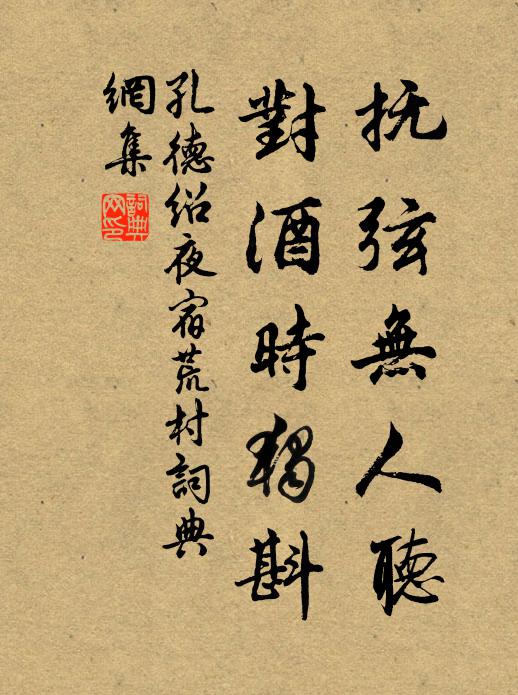 抚弦無人聽
對酒時獨斟
孔德绍夜宿荒村詞典
網集
詞典
网印